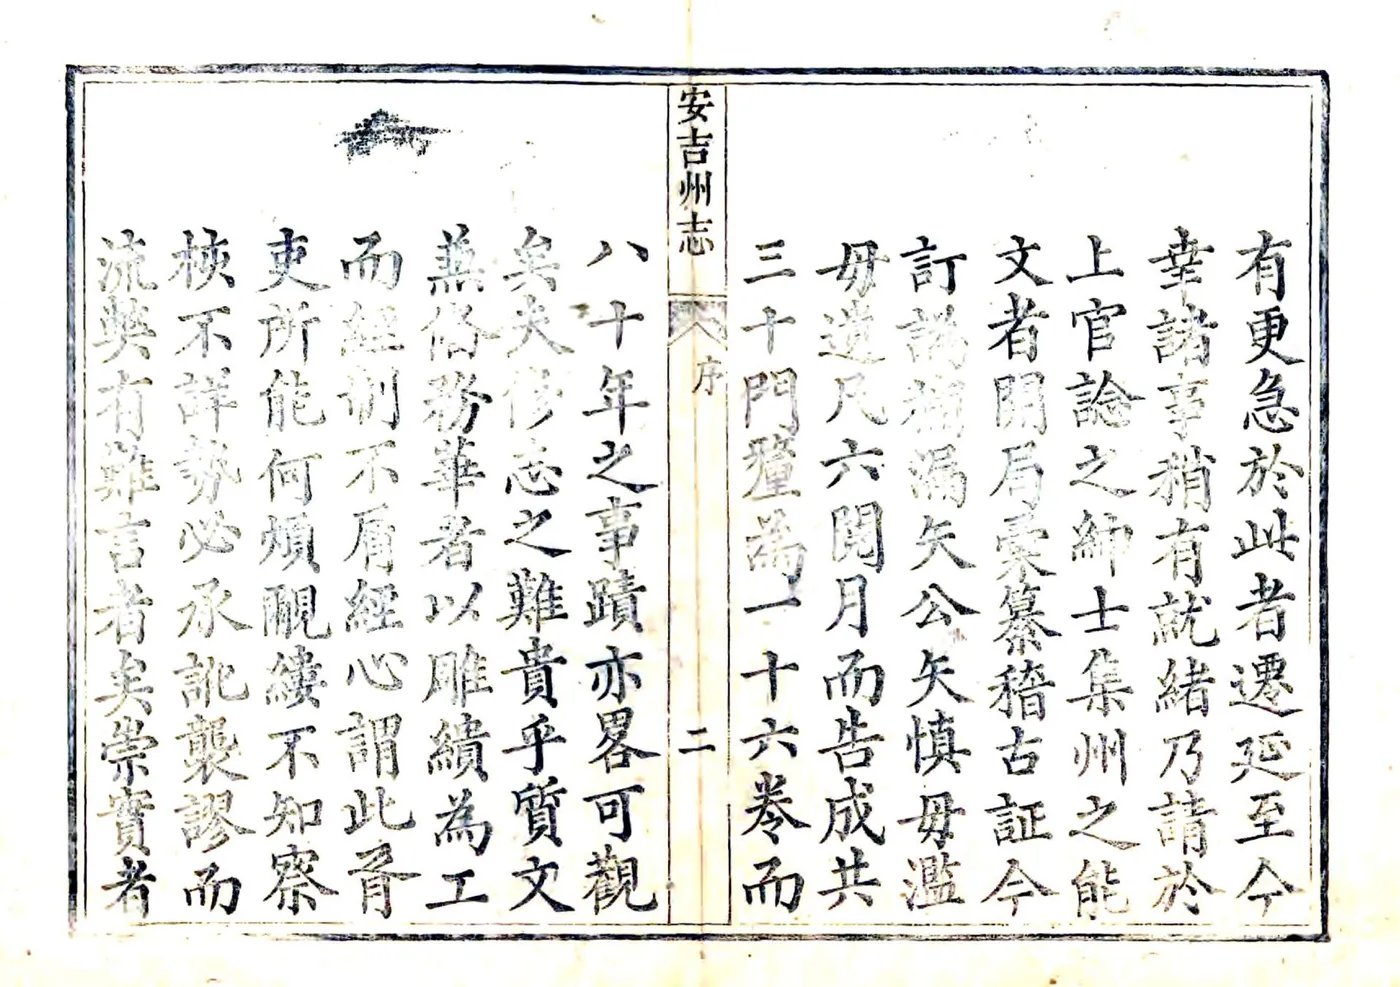 有更急於此者遷延至今
幸諸事稍有就緒乃請於
上官諗之紳士集州之能
文者開局彚纂稽古証今
訂譌補漏矢公矢慎毋濫
毋遺凡六閱月而告成共
三十門釐為一十六卷而
安吉州志
序
二
八十年之事蹟亦畧可觀
矣夫修志之難貴乎質文
兼俻務華者以雕繢為工
而經制不屑經心謂此胥
吏所能何煩覼縷不知察
核不詳勢必承訛襲謬而
流獘有難言者矣崇實者